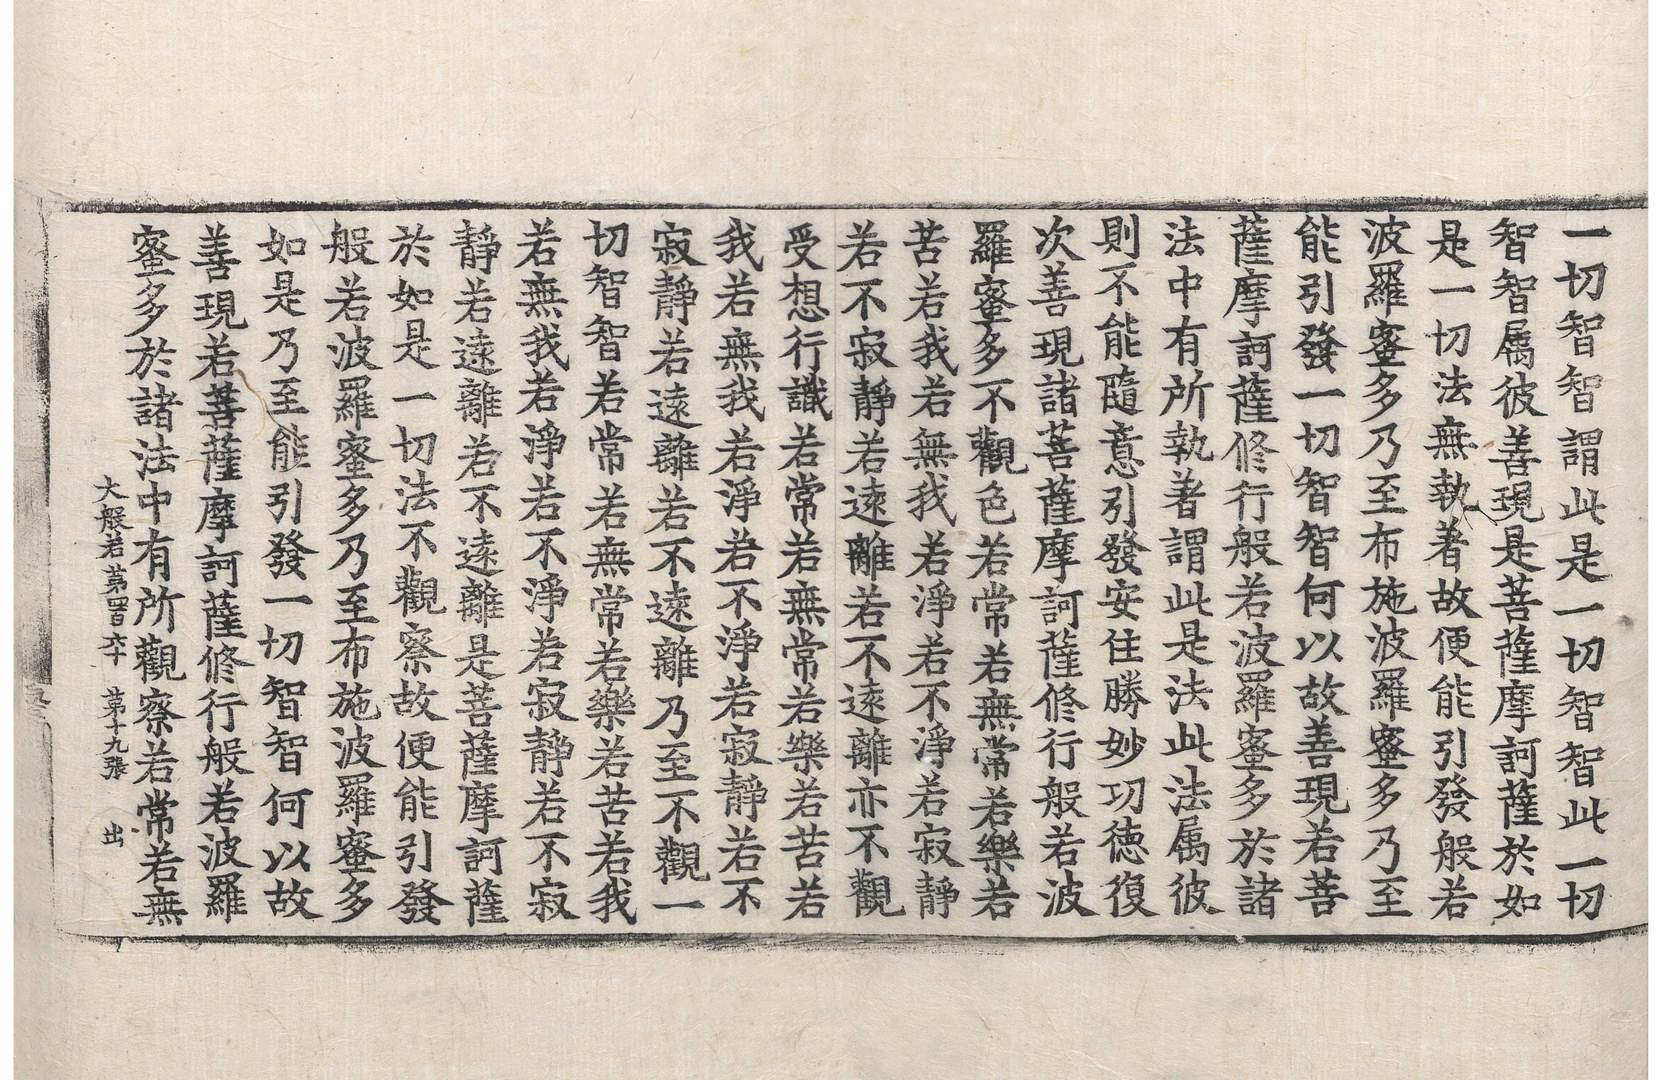 一切智智謂此是一切智智此一切
智智属彼善現是菩薩摩訶薩於如
是一切法無執著故便能引發般若
波羅蜜多乃至布施波羅蜜多乃至
能引發一切智智何以故善現若菩
薩摩訶薩修行般若波羅蜜多於諸
法中有所執著謂此是法此法属彼
則不能隨意引發安住勝妙功德復
次善現諸菩薩摩訶薩修行般若波
羅蜜多不觀色若常若無常若樂若
苦若我若無我若淨若不淨若寂靜
若不寂靜若遠離若不遠離亦不觀
受想行識若常若無常若樂若苦若
我若無我若淨若不淨若寂靜若不
寂靜若遠離若不遠離乃至不觀一
切智智若常若無常若樂若苦若我
若無我若淨若不淨若寂靜若不寂
靜若遠離若不遠離是菩薩摩訶薩
於如是一切法不觀察故便能引發
般若波羅蜜多乃至布施波羅蜜多
如是乃至能引發一切智智何以故
善現若菩薩摩訶薩修行般若波羅
蜜多於諸法中有所觀察若常若無
大般若第四百六十 第十九張 出